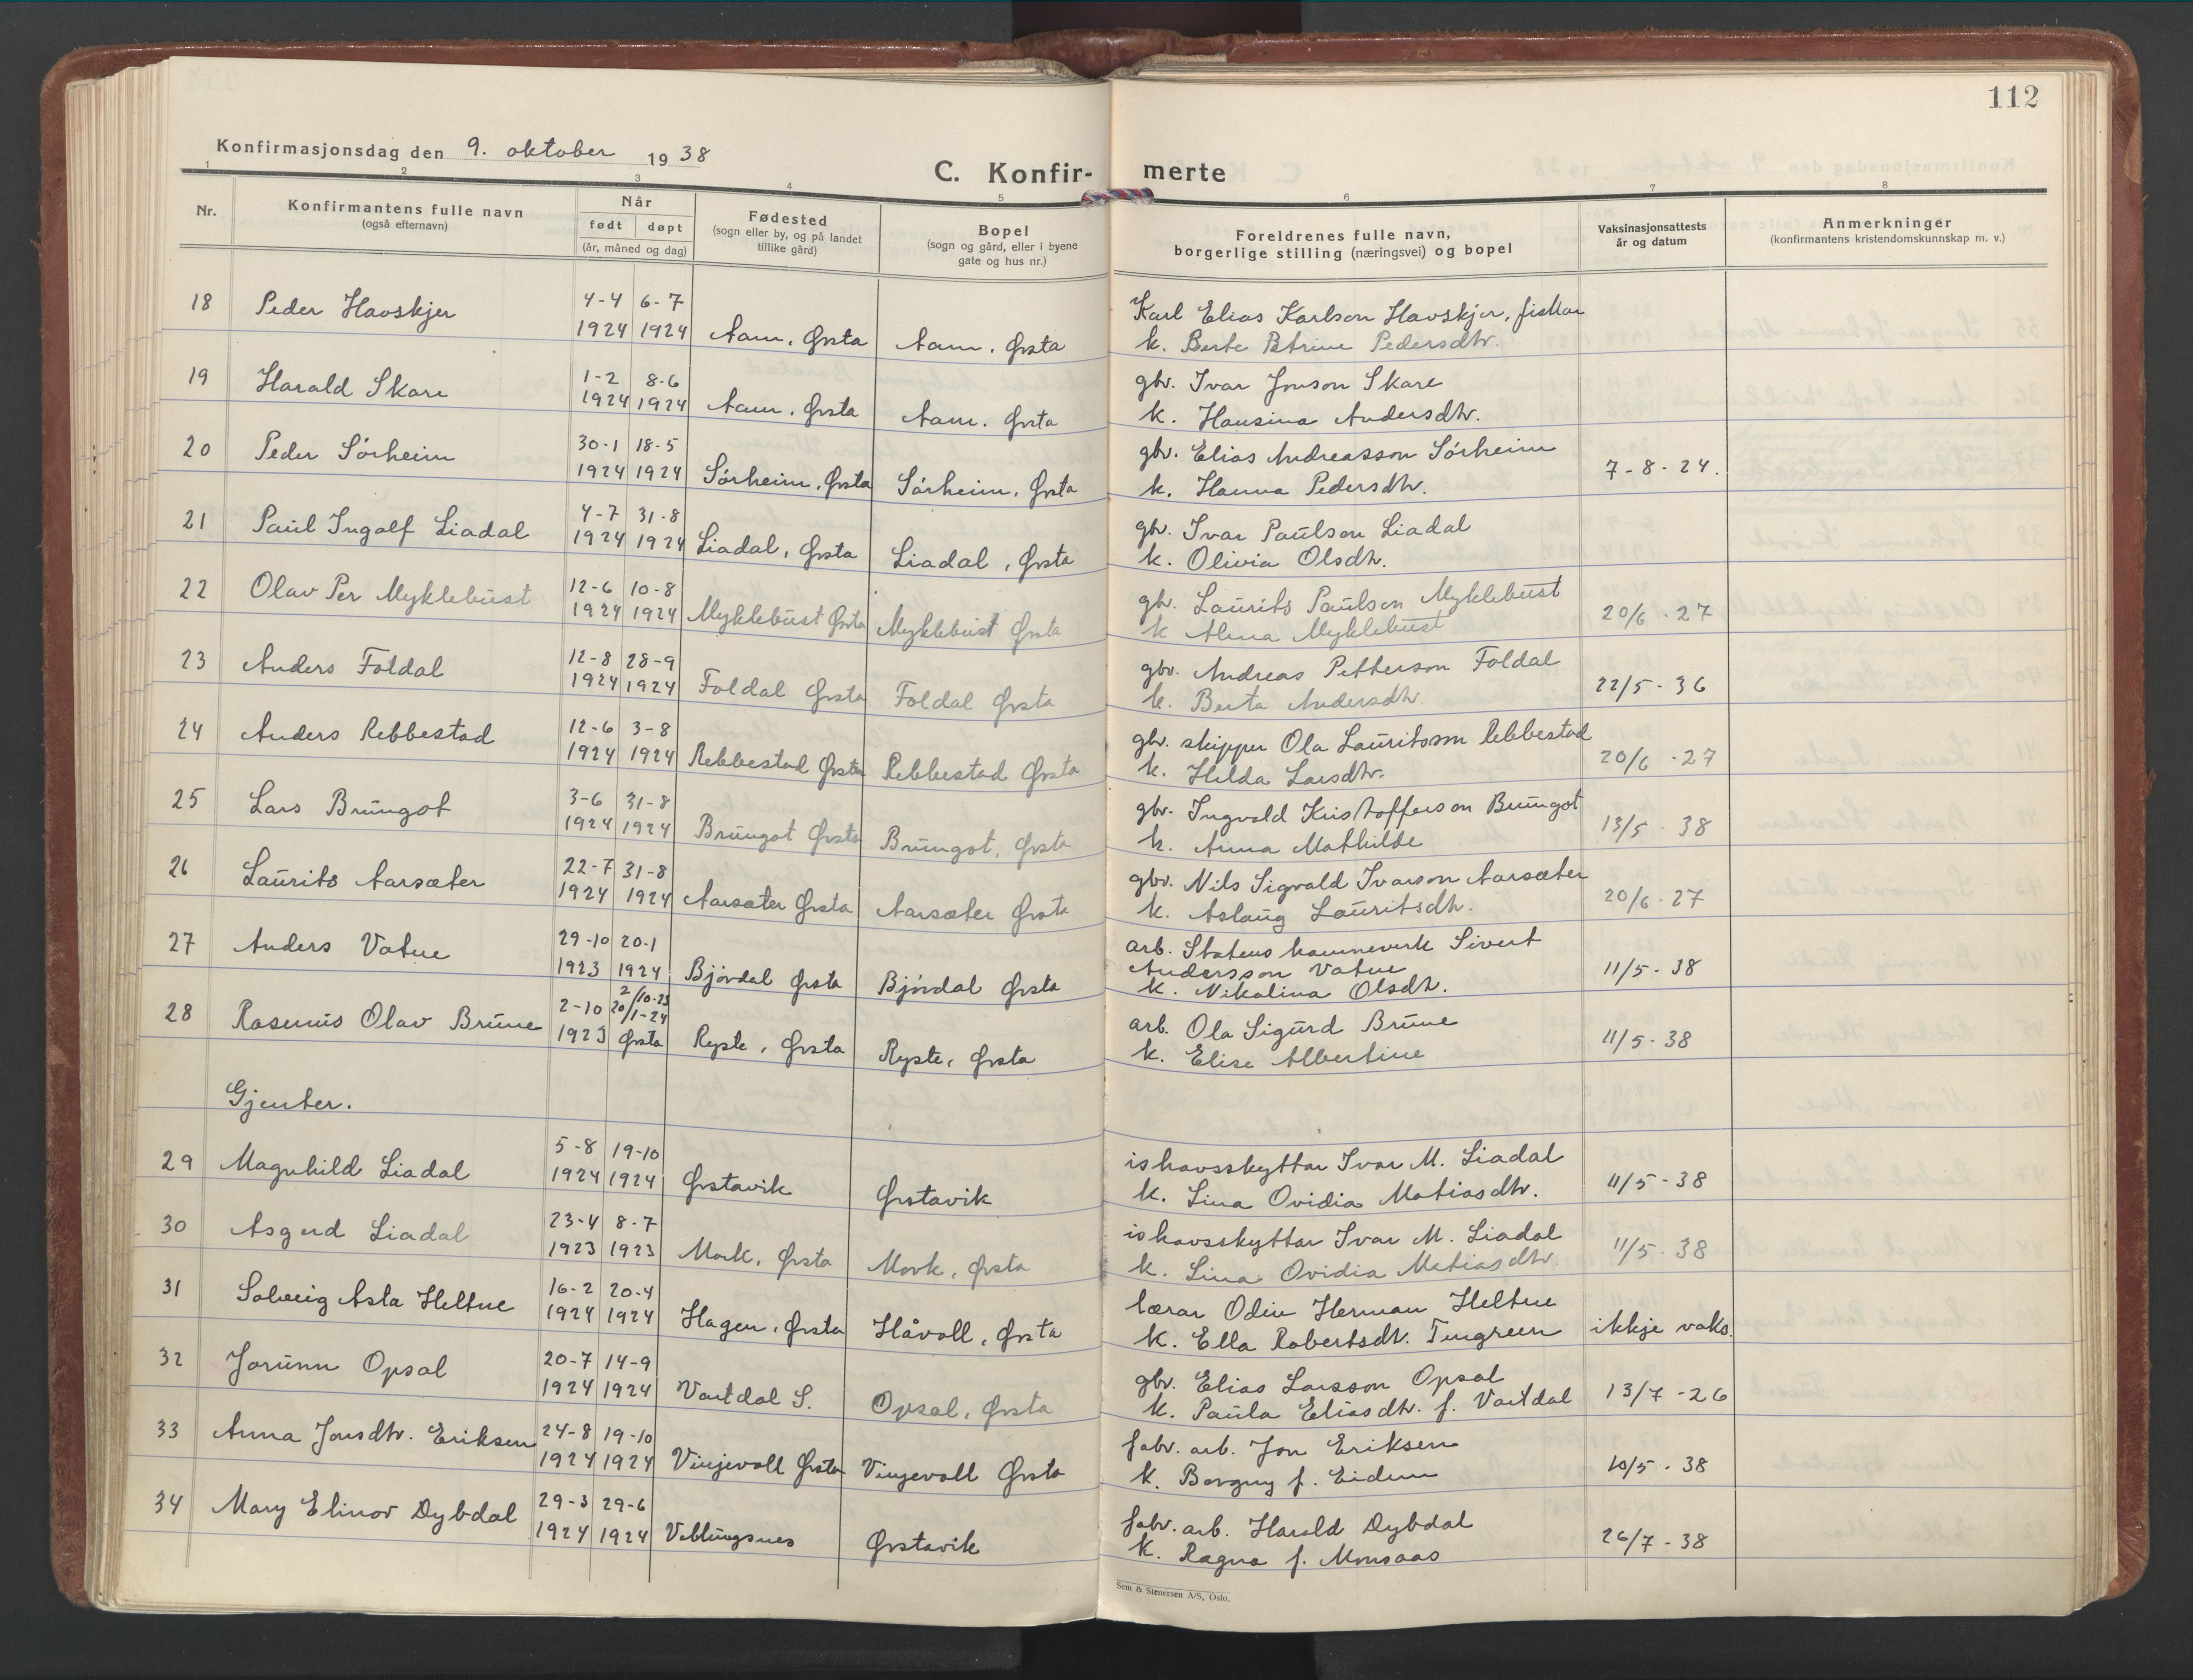 112
Konfirmasjonsdag den 9. oktober 1938
C. Konfir- merte
1 2 3 4 5 6 7 8
Nr. Konfirmantens fulle navn (også efternavn) Når født døpt (år, måned og dag) Fødested (sogn eller by, og på landet tillike gård) Bopel (sogn og gård, eller i byene gate og hus nr.) Foreldrenes fulle navn, borgerlige stilling (næringsvei) og bopel Vaksinasjonsattests år og datum Anmerkninger (konfirmantens kristendomskunnskap m. v.)
18 Peder Havskjer 4-4 1924 6-7 1924 Aam, Ørsta Aam, Ørsta Karl Elias Karlson Havskjer, fiskar
k. Berte Petrine Pedersdtr.
19 Harald Skare 1-2 1924 8-6 1924 Aam, Ørsta Aam, Ørsta gbr. Ivar Jonson Skare
k. Hansina Andersdtr.
20 Peder Sörheim 30-1 1924 18-5 1924 Sörheim, Ørsta Sörheim, Ørsta gbr. Elias Andreasson Sörheim
k. Hanna Pedersdtr. 7-8-24.
21 Paul Ingolf Liadal 4-7 1924 31-8 1924 Liadal, Ørsta Liadal, Ørsta gbr. Ivar Paulson Liadal
k. Olivia Olsdtr.
22 Olav Per Myklebust 12-6 1924 10-8 1924 Myklebust Ørsta Myklebust Ørsta gbr. Laurits Paulson Myklebust
k Alma Myklebust 20/6-27
23 Anders Foldal 12-8 1924 28-9 1924 Foldal Ørsta Foldal Ørsta gbr. Andreas Petterson Foldal
k. Berta Andersdtr. 22/5-36
24 Anders Rebbestad 12-6 1924 3-8 1924 Rebbestad Ørsta Rebbestad Ørsta gbr. skipper Ola Lauritsson Rebbestad
k. Hilda Larsdtr. 20/6-27
25 Lars Brungot 3-6 1924 31-8 1924 Brungot Ørsta Brungot, Ørsta gbr. Ingvald Kristofferson Brungot
k. Anna Mathilde 13/5-38
26 Laurits Aarsæter 22-7 1924 31-8 1924 Aarsæter Ørsta Aarsæter Ørsta gbr. Nils Sigvald Ivarson Aarsæter
k. Aslaug Lauritsdtr. 20/6-27
27 Anders Vatne 29-10 1923 20-1 1924 Björdal Ørsta Björdal Ørsta arb. Statens havneverk Sivert
Andersson Vatne
k. Nikolina Olsdtr. 11/5-38
28 Rasmus Olav Brune 2-10 1923 2/10-23 20/1-24 Ørsta Ryste, Ørsta Ryste, Ørsta arb. Ola Sigurd Brune
k. Elise Albertine 11/5-38
Gjenter.
29 Magnhild Liadal 5-8 1924 19-10 1924 Ørstavik Ørstavik ishavsskyttar Ivar M. Liadal
k. Lina Ovidia Matiasdtr. 11/5-38
30 Asgerd Liadal 23-4 1923 8-7 1923 Mork, Ørsta Mork, Ørsta ishavsskyttar Ivar M. Liadal
k. Lina Ovidia Matiasdtr. 11/5-38
31 Solveig Asta Heltne 16-2 1924 20-4 1924 Hagen, Ørsta Håvoll, Ørsta lærar Odin Herman Heltne
k. Ella Robertsdtr. Tengreen ikkje vaks.
32 Jorunn Opsal 20-7 1924 14-9 1924 Vartdal S. Opsal, Ørsta gbr. Elias Larsson Opsal
k. Paula Eliasdtr. f. Vartdal 13/7-26
33 Anna Jonsdtr. Eriksen 24-8 1924 19-10 1924 Vinjevoll Ørsta Vinjevoll Ørsta fabr. arb. Jon Eriksen
k. Borgny f. Eidem 10/5-38
34 Mary Elinor Dybdal 29-3 1924 29-6 1924 Veblungsnes Ørstavik fabr. arb. Harald Dybdal
k. Ragna f. Monsaas 26/7-38
Sem & Stenersen A/S, Oslo.